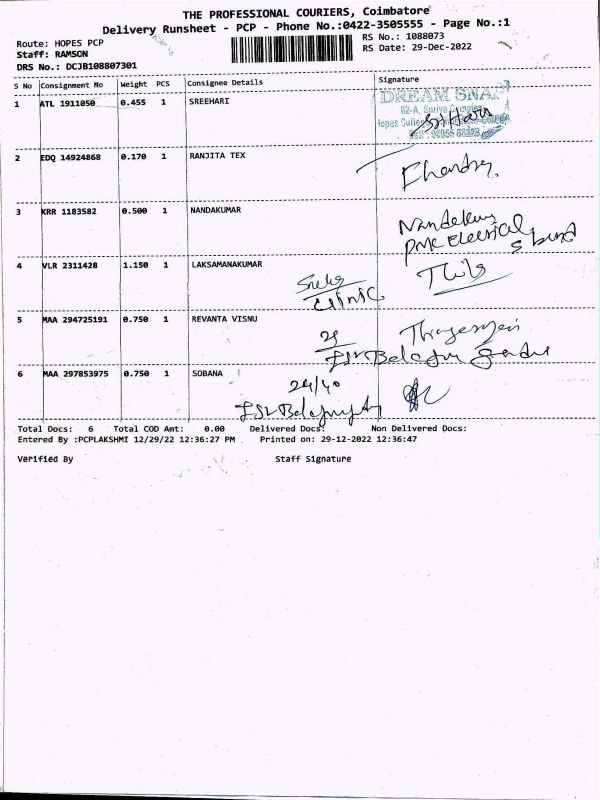 THE PROFESSIONAL COURIERS, Coimbatore
Delivery Runsheet - PCP - Phone No.:0422-3505555 - Page No.:1
Route: HOPES PCP
Staff: RAMSON
DRS No.: DCJB108807301
RS No.: 1088073
RS Date: 29-Dec-2022
S No Consignment No Weight PCS Consignee Details Signature
1 ATL 1911050 0.455 1 SREEHARI
DREAM SNAP
62-A, Suriya Complex
2 EDQ 14924868 0.170 1 RANJITA TEX
3 KRR 1183582 0.500 1 NANDAKUMAR
4 VLR 2311428 1.150 1 LAKSAMANAKUMAR
Clinic
5 MAA 294725191 0.750 1 REVANTA VISNU
6 MAA 297853975 0.750 1 SOBANA
24/40
Total Docs: 6 Total COD Amt: 0.00 Delivered Docs: Non Delivered Docs:
Entered By :PCPLAKSHMI 12/29/22 12:36:27 PM Printed on: 29-12-2022 12:36:47
Verified By Staff Signature